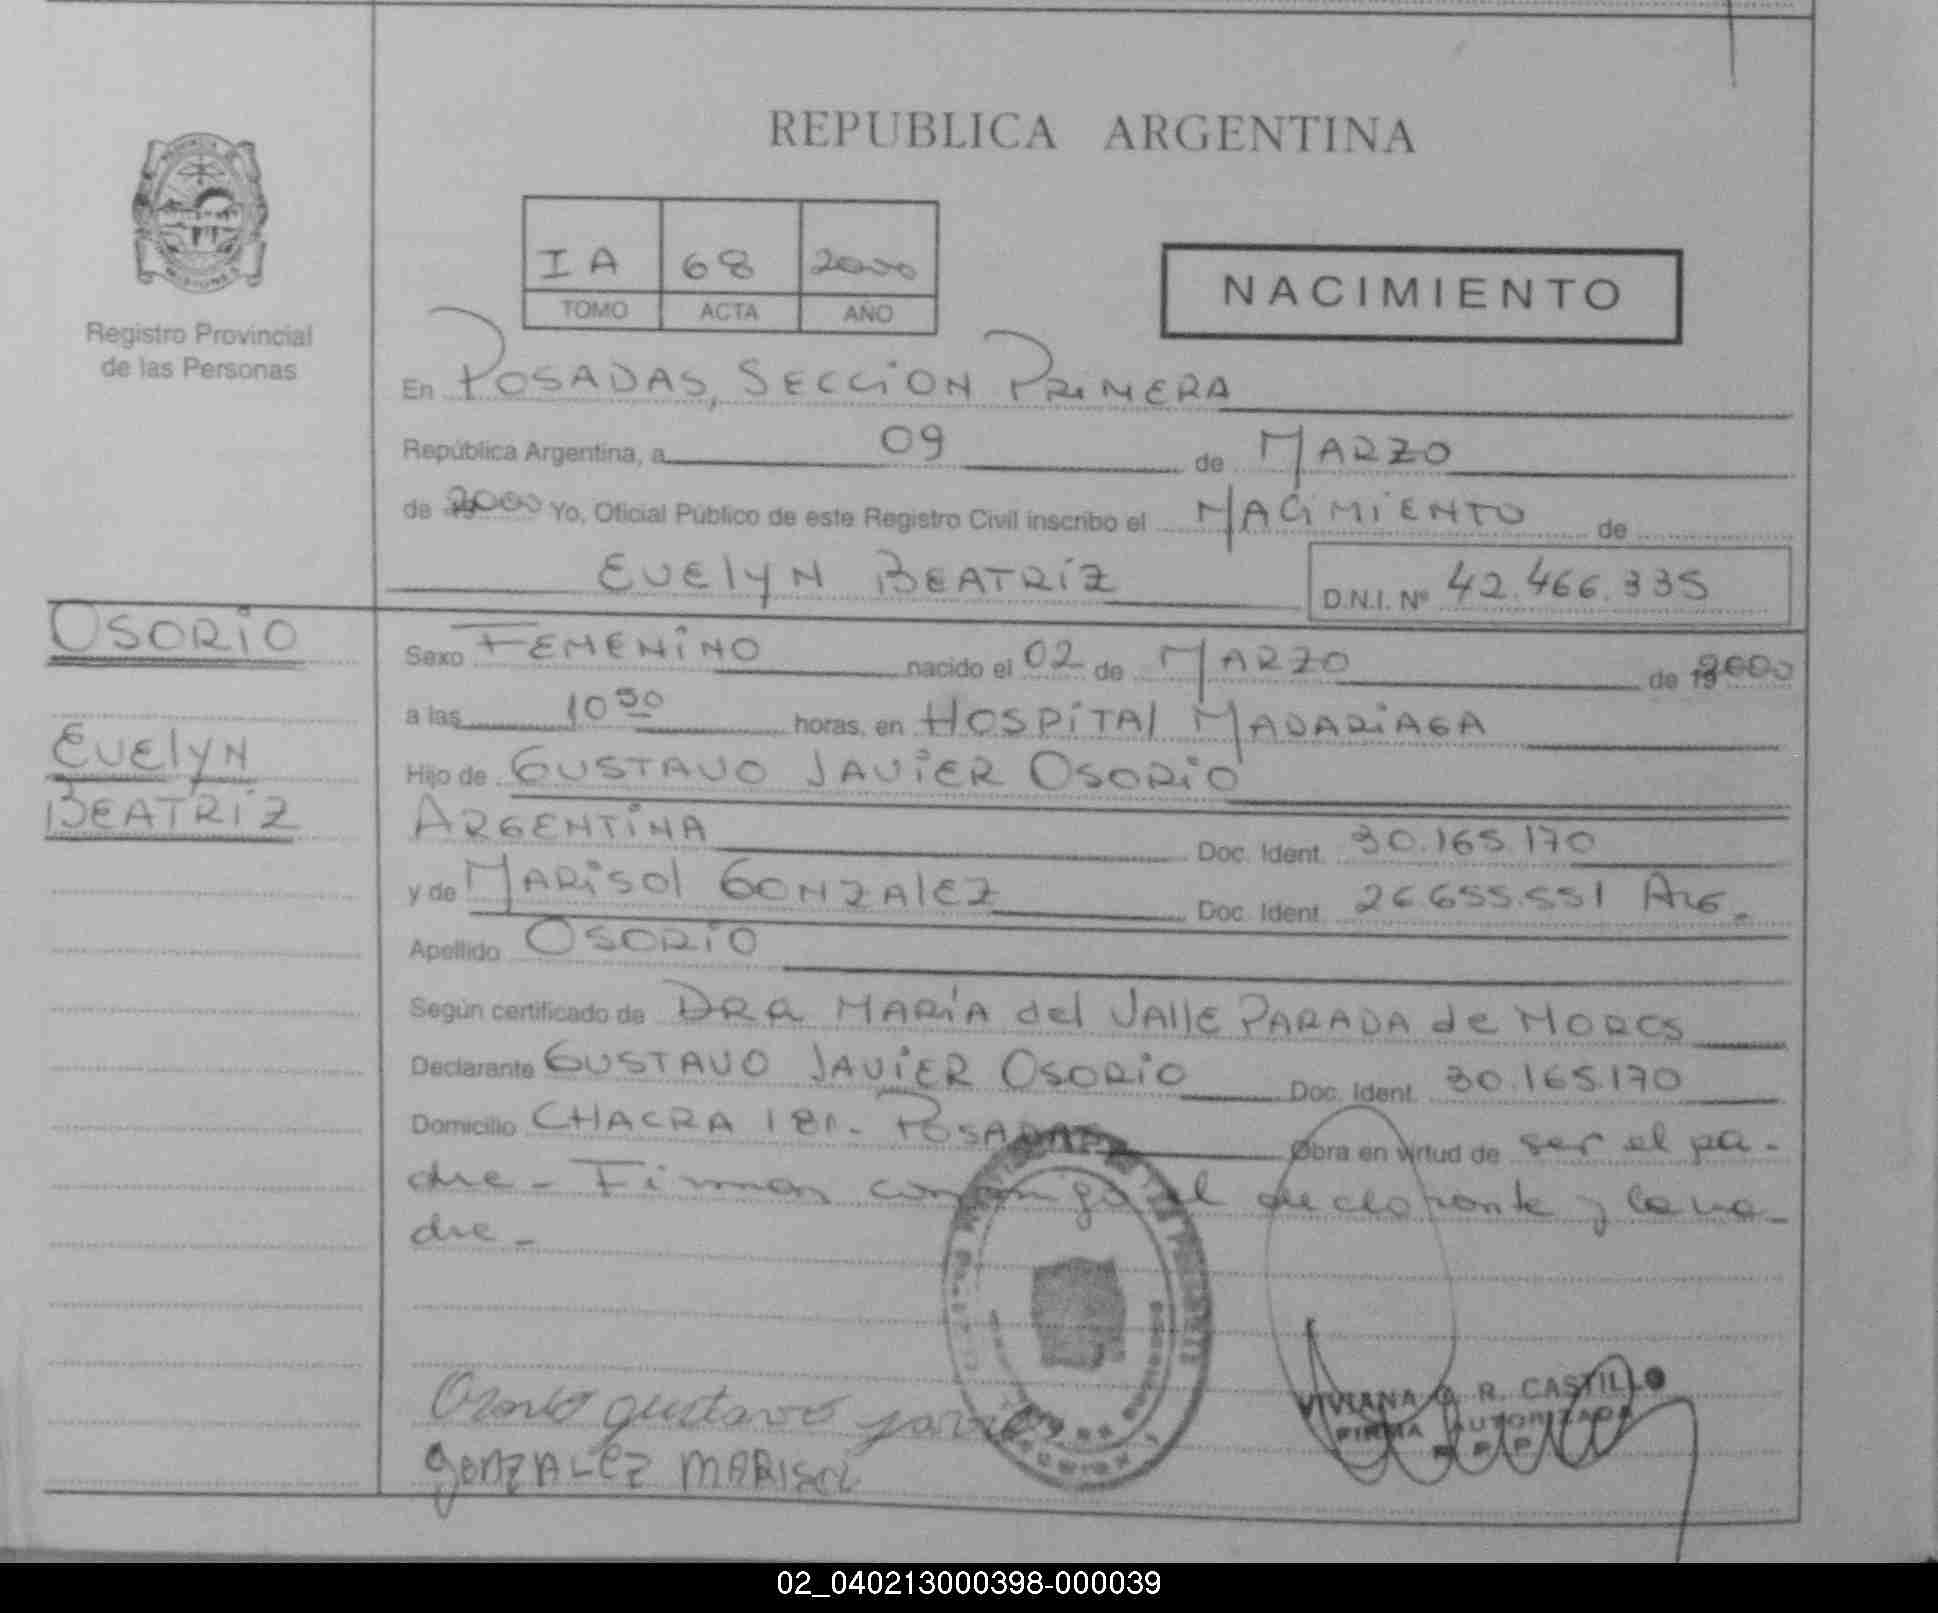 REPUBLICA ARGENTINA
IA 68 2000
TOMO ACTA AÑO
NACIMIENTO
Registro Provincial
de las Personas
En POSADAS, SECCION PRIMERA
República Argentina, a 09 de MARZO
de 2000 Yo, Oficial Público de este Registro Civil inscribo el NACIMIENTO de
EVElyN BEATRIZ D.N.I. Nº 42.466.335
OSORIO
EVElyN
BEATRIZ
Sexo FEMENINO nacido el 02 de MARZO de 2000
a las 10 30 horas, en HOSPITAl MADARIAGA
Hijo de GUSTAVO JAVIER OSORIO
ARGENTINA Doc. Ident. 30.165.170
y de MARISOl GONZAlEZ Doc. Ident. 26.655.551 ARG.
Apellido OSORIO
Según certificado de DRA MARIA del VAllE PARADA de
Declarante GUSTAVO JAVIER OSORIO Doc. Ident. 30.165.170
Domicilio CHACRA 181- POSADAS Obra en virtud de ser el pa-
dre - Firman conmigo el declarante y la ma-
dre -
Osorio gustavo javier
gONZALEZ MARISOL
VIVIANA R. CASTILLO
FIRMA AUTORIZADA
02_040213000398-000039